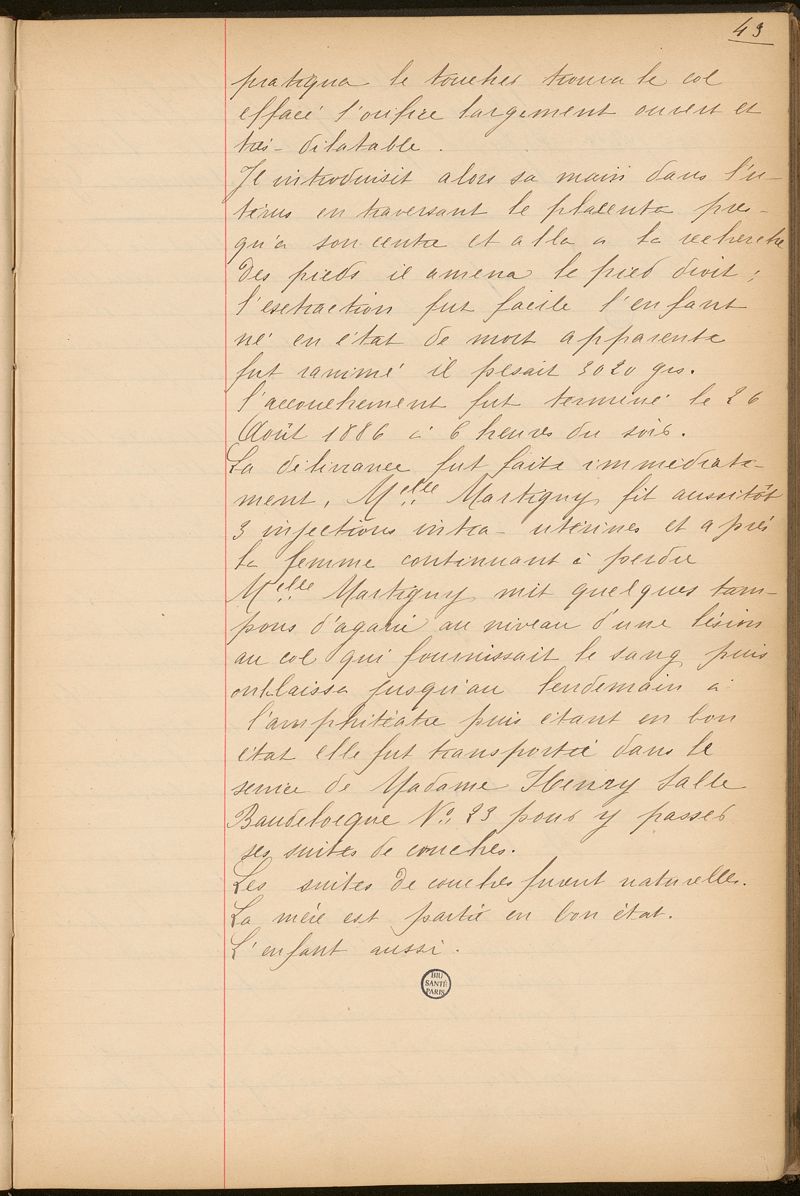 43
pratiqua le toucher trouva le col
effacé l'orifice largement ouvert et
très-dilatable.
Il introduisit alors sa main dans l'u-
térus en traversant le placenta pres-
qu'à son centre et alla à la recherche
des pieds il amena le pied droit ;
l'extraction fut facile l'enfant
né en état de mort apparente
fut ranimé il pesait 3020 grs.
l'accouchement fut terminé le 26
Août 1886 à 6 heures du soir.
La délivrance fut faite immédiate-
ment. Melle Martigny fit aussitôt
3 injections intra-utérines et après
la femme continuant à perdre
Melle Martigny mit quelques tam-
pons d'agaric au niveau d'une lésion
au col qui fournissait le sang puis
on la laissa jusqu'au lendemain à
l'amphitéatre puis étant en bon
état elle fut transportée dans le
service de Madame Henry Salle
Baudelocque No 23 pour y passer
ses suites de couches.
Les suites de couches furent naturelles.
La mère est partie en bon état.
L'enfant aussi.
BIU
SANTÉ
PARIS